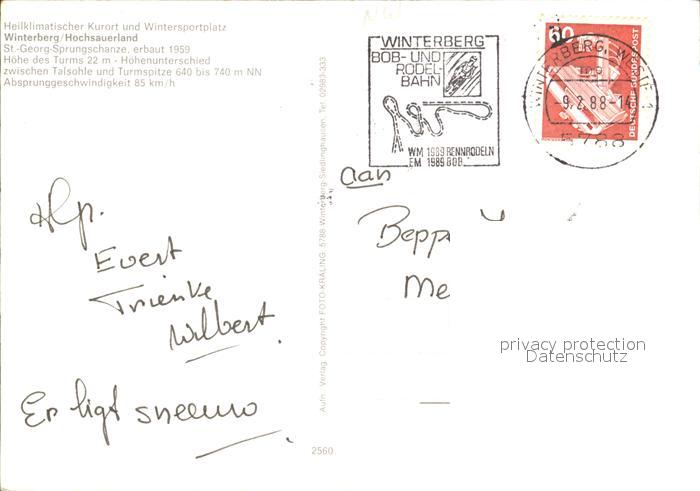 Heilklimatischer Kurort und Wintersportplatz
Winterberg/Hochsauerland
St.-Georg-Sprungschanze, erbaut 1959
Höhe des Turms 22 m - Höhenunterschied
zwischen Talsohle und Turmspitze 640 bis 740 m NN
Absprunggeschwindigkeit 85 km/h
WINTERBERG
BOB- UND
RODEL-
BAHN
WM 1989 RENNRODELN
EM 1989 BOB
60
DEUTSCHE BUNDESPOST
WINTERBERG, WESTF 1
-9.2.88-14
5788
Aufn. Verlag Copyright FOTO-KRALING, 5788 Winterberg-Siedlinghausen, Tel. 02983-333
aan
Bepp
Me
Hlp.
Evert
Trienke
Wilbert.
Er ligt sneeuw
privacy protection
Datenschutz
2560